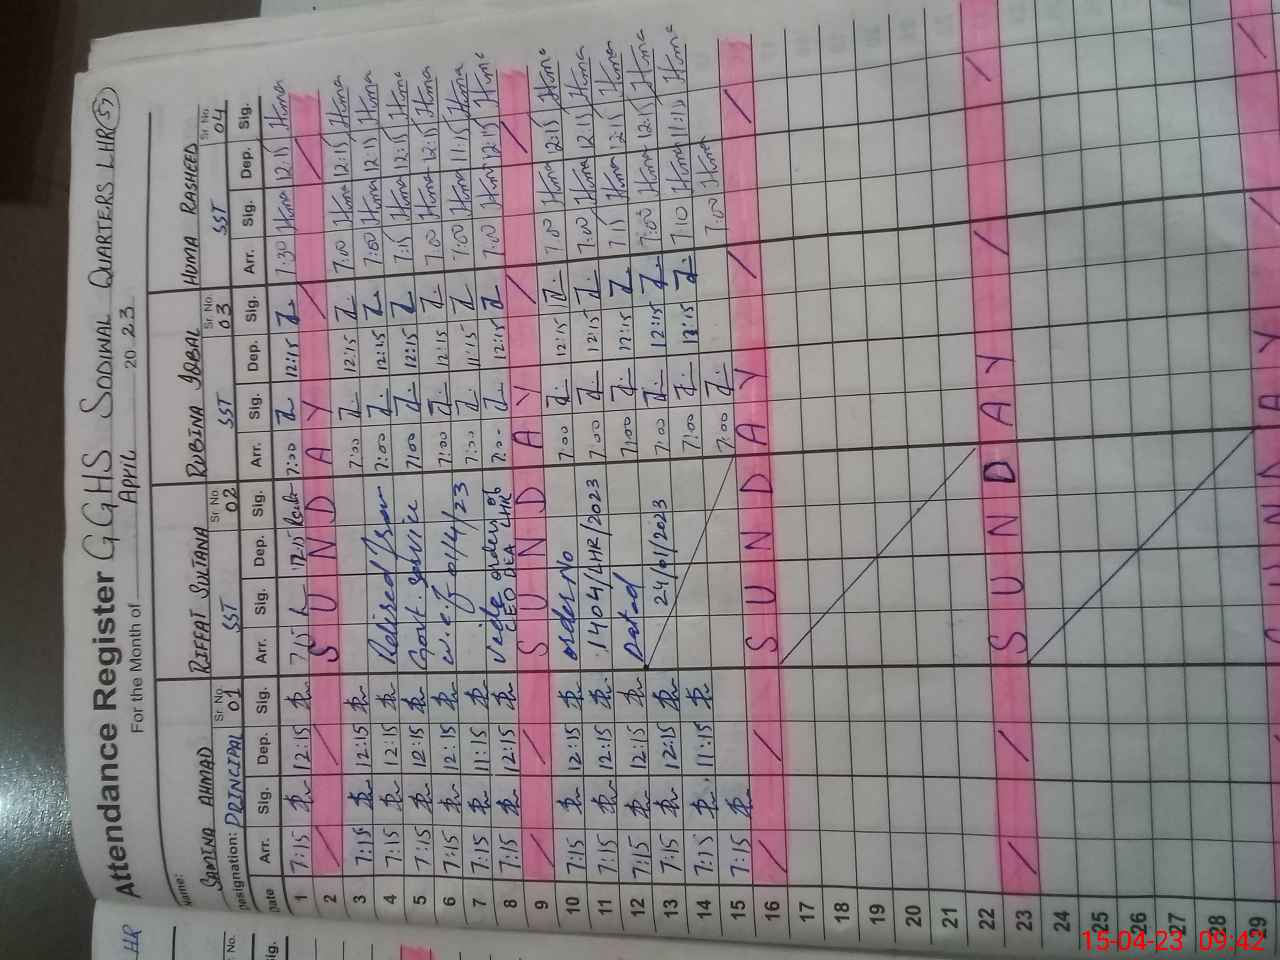 Attendance Register GGHS SODIWAL QUARTERS LHR (57)
For the Month of April 2023
Name:
SAMINA AHMAD RIFFAT SULTANA RUBINA IQBAL HUMA RASHEED
Designation: PRINCIPAL Sr. No. 01 SST Sr. No. 02 SST Sr. No. 03 SST Sr. No. 04
Date Arr. Sig. Dep. Sig. Arr. Sig. Dep. Sig. Arr. Sig. Dep. Sig. Arr. Sig. Dep. Sig.
1 7:15 12:15 7:15 12:15 7:00 12:15 7:30 Huma 12:15 Huma
2 S U N D A Y
3 7:15 12:15 7:00 12:15 7:00 Huma 12:15 Huma
4 7:15 12:15 Retired from 7:00 12:15 7:00 Huma 12:15 Huma
5 7:15 12:15 Govt. Service 7:00 12:15 7:15 Huma 12:15 Huma
6 7:15 12:15 w.e.f 01/4/23 7:00 12:15 7:00 Huma 12:15 Huma
7 7:15 11:15 7:00 11:15 7:00 Huma 11:15 Huma
8 7:15 12:15 vide order of CEO DEA LHR 7:00 12:15 7:00 Huma 12:15 Huma
9 S U N D A Y
10 7:15 12:15 order No 7:00 12:15 7:00 Huma 12:15 Huma
11 7:15 12:15 1404/LHR/2023 7:00 12:15 7:00 Huma 12:15 Huma
12 7:15 12:15 Dated 7:00 12:15 7:15 Huma 12:15 Huma
13 7:15 12:15 24/01/2023 7:00 12:15 7:00 Huma 12:15 Huma
14 7:15 11:15 7:00 7:10 Huma 11:15 Huma
15 7:15 7:00 7:00 Huma
16 S U N D A Y
17
18
19
20
21
22 S U N D A Y
23
24
25
26
27
28
29 S U N D A Y
HR
Sr. No.
Sig.
15-04-23 09:42